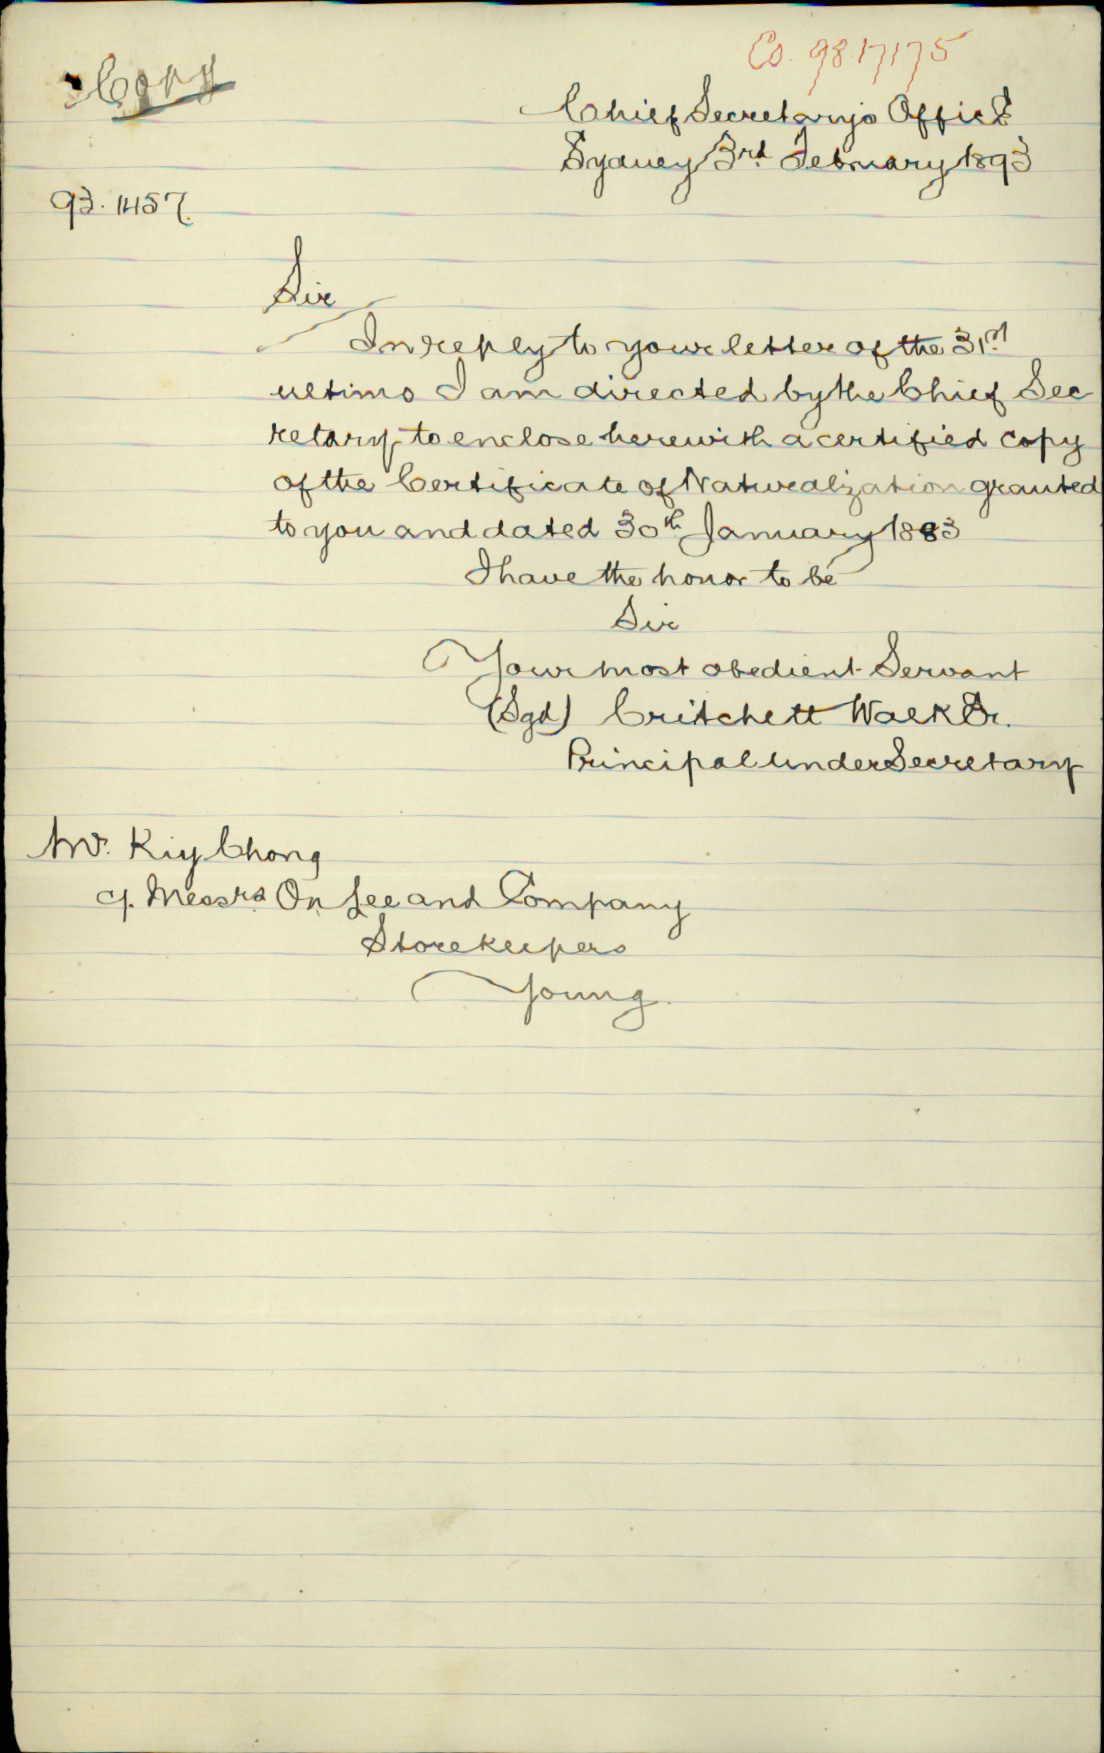 Co. 98.17175
Copy
Chief Secretary's Office
Sydney 3rd February 1893
93.1457.
Sir
In reply to your letter of the 31st
ultimo I am directed by the Chief Sec
retary to enclose herewith a certified copy
of the Certificate of Naturalization granted
to you and dated 30th January 1883
I have the honor to be
Sir
Your most obedient Servant
(Sgd) Critchett Walker.
Principal Under Secretary
Mr. Kiy Chong
c/. Messrs On Lee and Company
Storekeepers
Young.